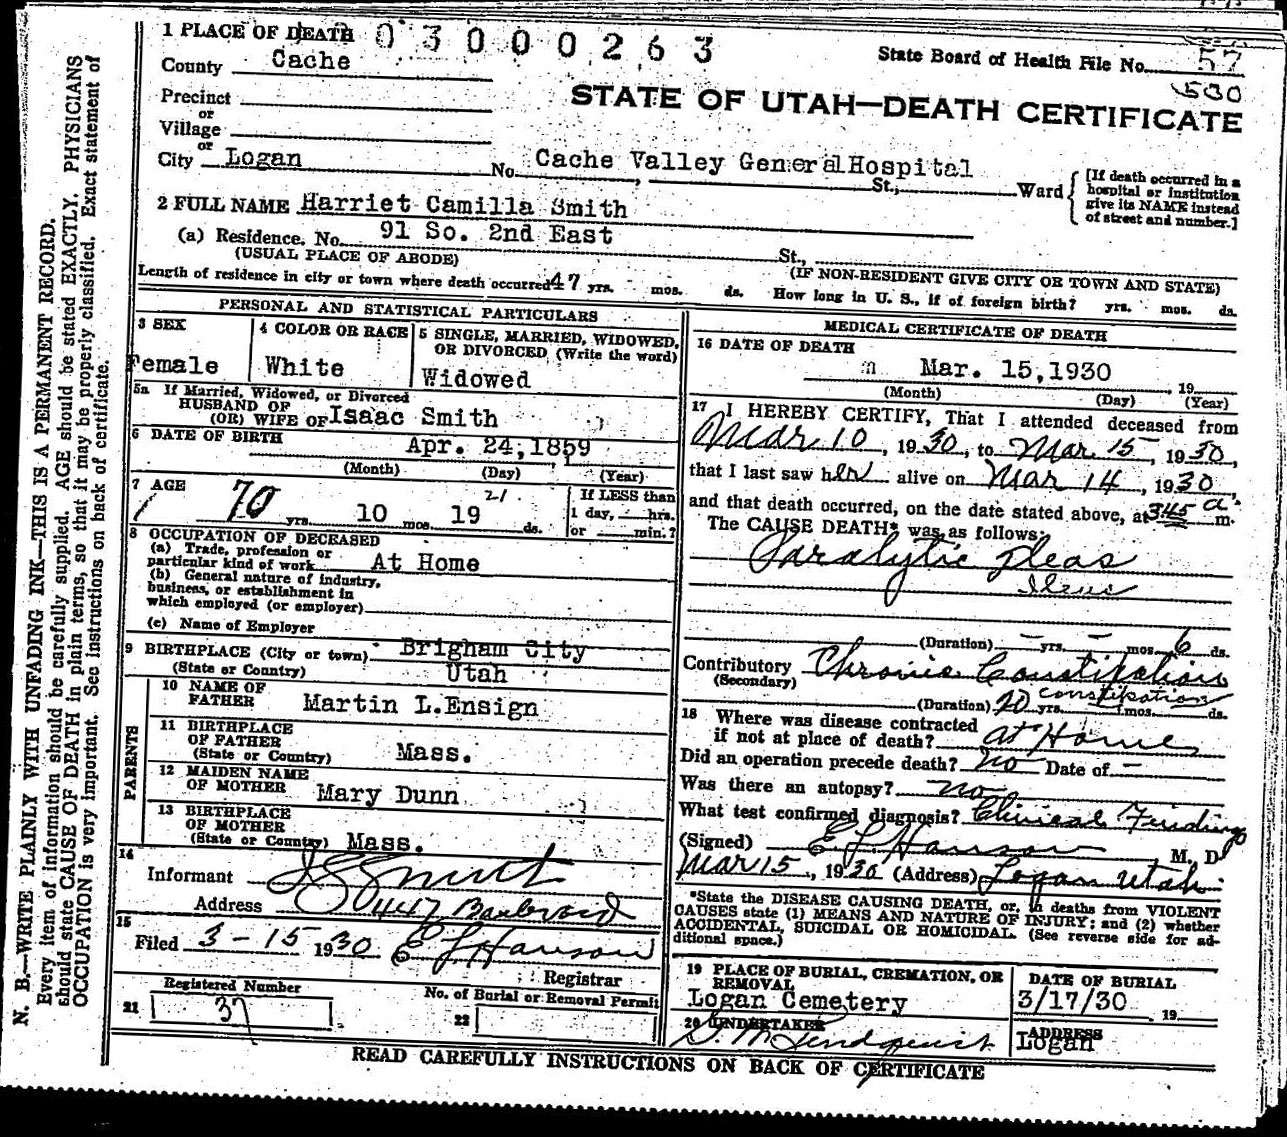 1 PLACE OF DEATH 03000263
State Board of Health File No. 57
530
County Cache
STATE OF UTAH—DEATH CERTIFICATE
Precinct
or
Village
or
City Logan No. Cache Valley General Hospital St., Ward
[If death occurred in a
hospital or institution
give its NAME instead
of street and number.]
2 FULL NAME Harriet Camilla Smith
(a) Residence. No. 91 So. 2nd East St.,
(USUAL PLACE OF ABODE) (IF NON-RESIDENT GIVE CITY OR TOWN AND STATE)
Length of residence in city or town where death occurred 47 yrs. mos. ds. How long in U. S., if of foreign birth? yrs. mos. ds.
PERSONAL AND STATISTICAL PARTICULARS
3 SEX
Female
4 COLOR OR RACE
White
5 SINGLE, MARRIED, WIDOWED,
OR DIVORCED (Write the word)
Widowed
5a If Married, Widowed, or Divorced
HUSBAND OF
(OR) WIFE OF Isaac Smith
6 DATE OF BIRTH Apr. 24,1859
(Month) (Day) (Year)
7 AGE 21
70 yrs. 10 mos. 19 ds.
If LESS than
1 day, hrs.
or min.?
8 OCCUPATION OF DECEASED
(a) Trade, profession or
particular kind of work At Home
(b) General nature of industry,
business, or establishment in
which employed (or employer)
(c) Name of Employer
9 BIRTHPLACE (City or town) Brigham City
(State or Country) Utah
PARENTS
10 NAME OF
FATHER Martin L.Ensign
11 BIRTHPLACE
OF FATHER
(State or Country) Mass.
12 MAIDEN NAME
OF MOTHER Mary Dunn
13 BIRTHPLACE
OF MOTHER
(State or Country) Mass.
14
Informant
Address
15
Filed 3-15 1930 E L Hanson
Registrar
Registered Number
21 37
No. of Burial or Removal Permit
22
MEDICAL CERTIFICATE OF DEATH
16 DATE OF DEATH
Mar. 15,1930 , 19
(Month) (Day) (Year)
17 I HEREBY CERTIFY, That I attended deceased from
Mar 10, 1930, to Mar. 15, 1930,
that I last saw her alive on Mar 14, 1930
and that death occurred, on the date stated above, at 345 a m.
The CAUSE DEATH* was as follows:
Paralytic Ileas
Ileus
(Duration) – yrs. – mos. 6 ds.
Contributory Chronic Constipation
(Secondary) constipation
(Duration) 20 yrs. mos. ds.
18 Where was disease contracted
if not at place of death? at Home
Did an operation precede death? no Date of –
Was there an autopsy? no
What test confirmed diagnosis? Clinical Findings
(Signed) E L Hanson, M. D.
Mar 15, 1930 (Address) Logan Utah
*State the DISEASE CAUSING DEATH, or, in deaths from VIOLENT
CAUSES state (1) MEANS AND NATURE OF INJURY; and (2) whether
ACCIDENTAL, SUICIDAL OR HOMICIDAL. (See reverse side for ad-
ditional space.)
19 PLACE OF BURIAL, CREMATION, OR
REMOVAL
Logan Cemetery
DATE OF BURIAL
3/17/30 , 19
20 UNDERTAKER
Lindquist
ADDRESS
Logan
READ CAREFULLY INSTRUCTIONS ON BACK OF CERTIFICATE
N. B.—WRITE PLAINLY WITH UNFADING INK—THIS IS A PERMANENT RECORD.
Every item of information should be carefully supplied. AGE should be stated EXACTLY. PHYSICIANS
should state CAUSE OF DEATH in plain terms, so that it may be properly classified. Exact statement of
OCCUPATION is very important. See instructions on back of certificate.